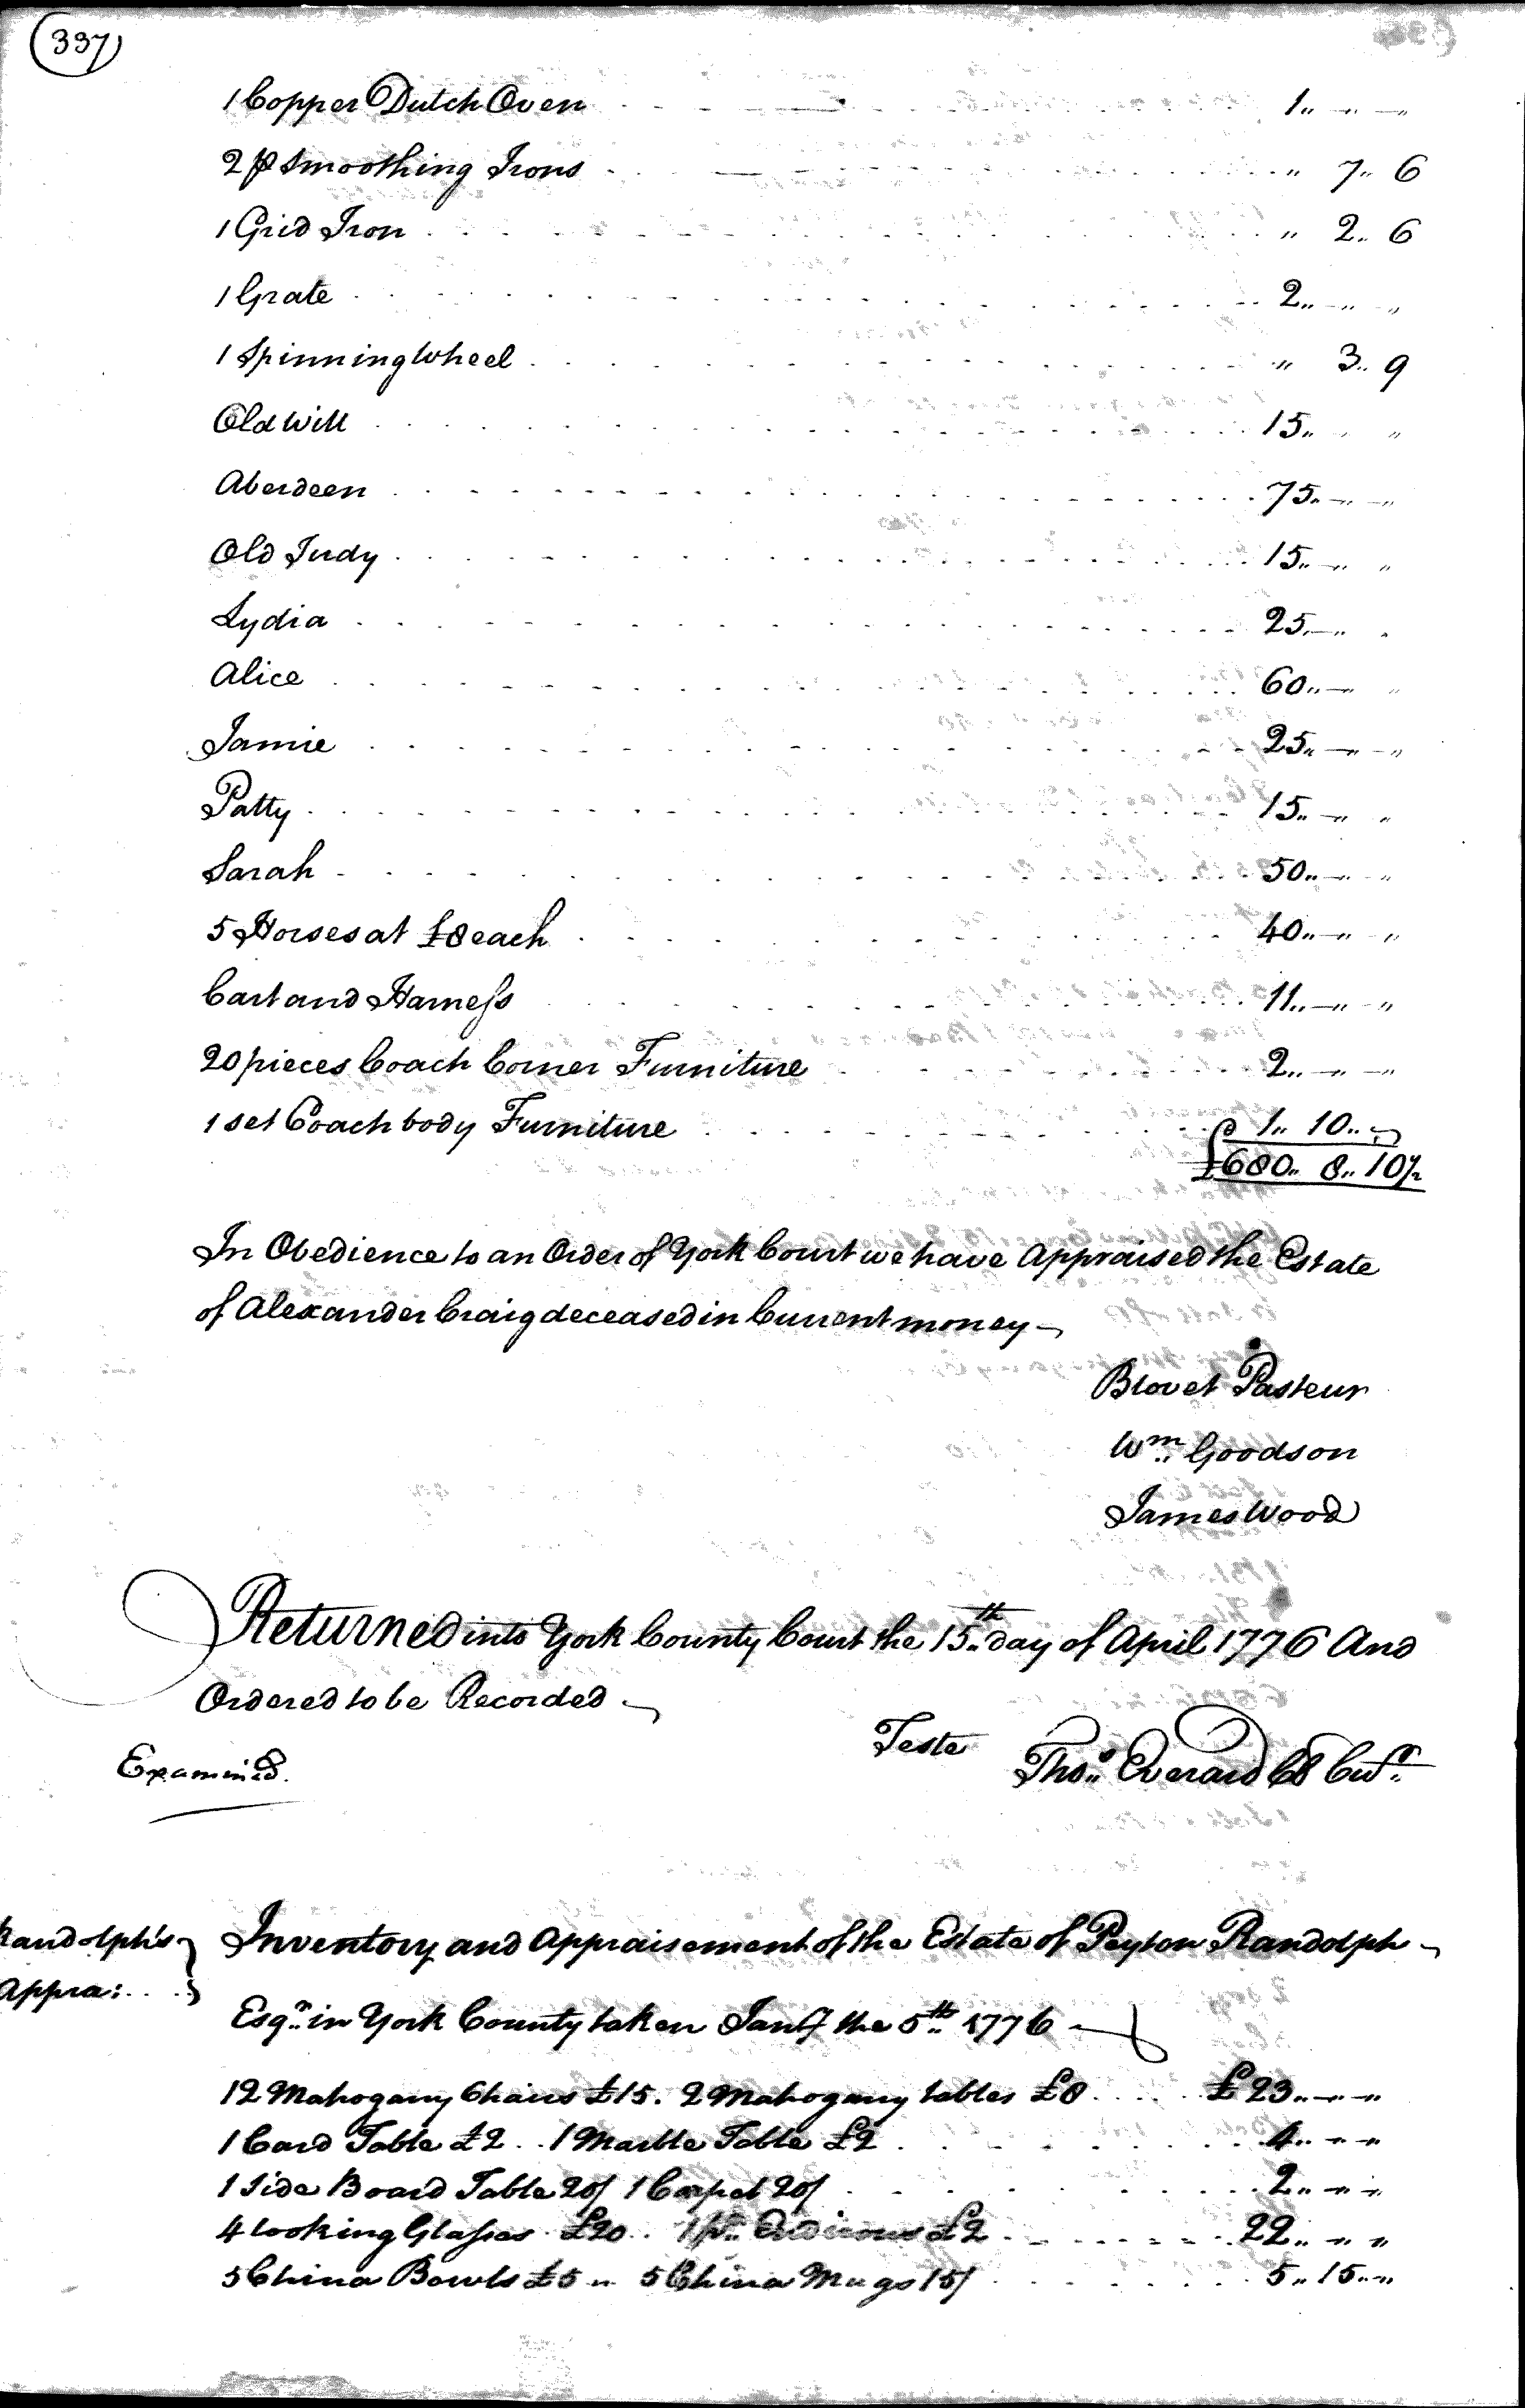 337
1 Copper Dutch Oven 1.. - -
2 p Smoothing Irons " 7.. 6
1 Grid Iron " 2.. 6
1 Grate 2.. " "
1 Spinning Wheel " 3.. 9
Old Will 15.. " "
Aberdeen 75.. " "
Old Judy 15.. " "
Lydia 25.. " "
Alice 60.. " "
Jamie 25.. " "
Patty 15.. " "
Sarah 50.. " "
5 Horses at £8 each 40.. " "
Cart and Harness 11.. " "
20 pieces Coach Corner Furniture 2.. " "
1 set Coach body Furniture 1.. 10.. "
£680.. 8.. 10½
In Obedience to an Order of York Court we have Appraised the Estate
of Alexander Craig deceased in Current money
Blovet Pasteur
Wm Goodson
James Wood
Returned into York County Court the 15th day of April 1776 And
Ordered to be Recorded
Teste
Examined.
Thos Everard Cl Cur
Randolph's
Appra:
Inventory and Appraisement of the Estate of Peyton Randolph
Esqr in York County taken Jany the 5th 1776
12 Mahogany Chairs £15. 2 Mahogany tables £8 £23.. " "
1 Card Table £2 .. 1 Marble Table £2 4.. " "
1 Side Board Table 20/ 1 Carpet 20/ 2.. " "
4 looking Glasses £20 .. 1 pr Andirons £2 22.. " "
5 China Bowls £5 .. 5 China Mugs 15/ 5.. 15.. "